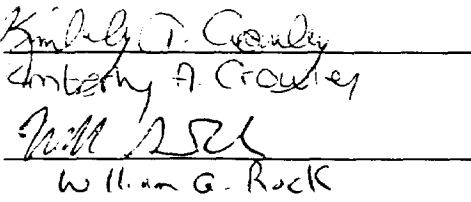 Kimberly A. Crowley
Kimberly A. Crowley
William G. Rock